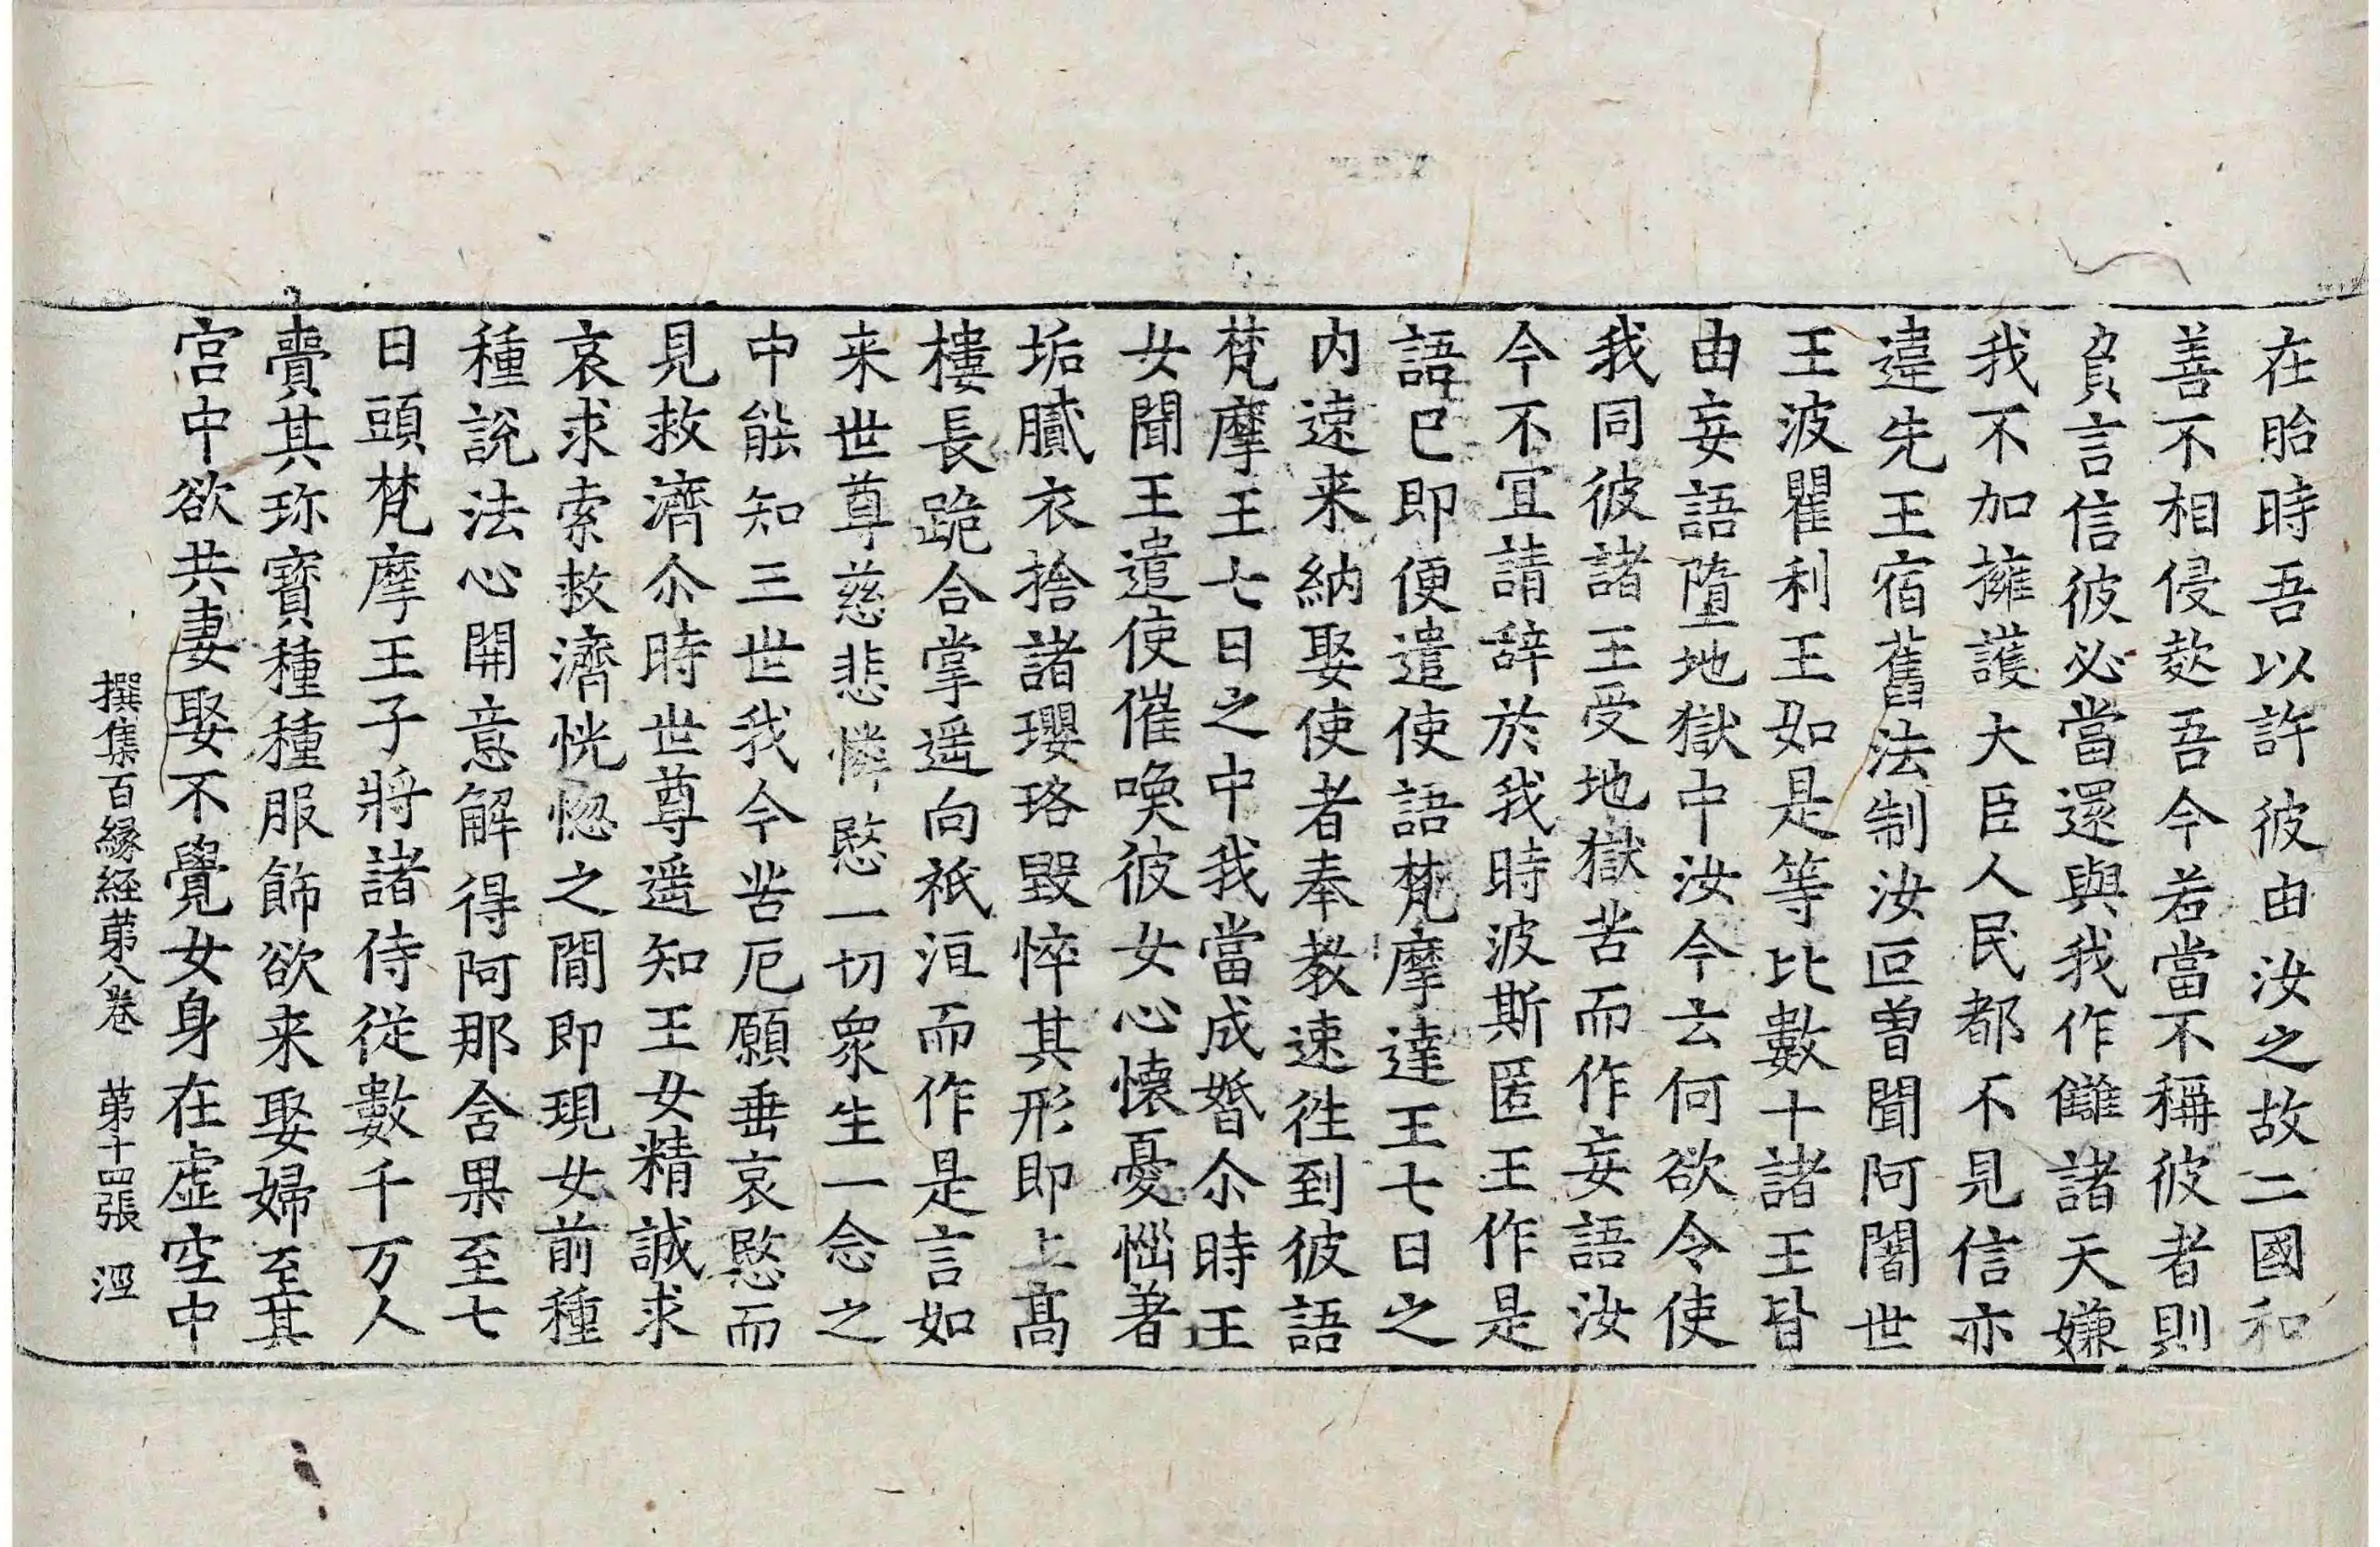 在胎時吾以許彼由汝之故二國和
善不相侵欺吾今若當不稱彼者則
負言信彼必當還與我作讎諸天嫌
我不加擁護大臣人民都不見信亦
違先王宿舊法制汝叵曽聞阿闍世
王波瞿利王如是等比數十諸王皆
由妄語墮地獄中汝今云何欲令使
我同彼諸王受地獄苦而作妄語汝
今不宜請辞於我時波斯匿王作是
語已即便遣使語梵摩達王七日之
内遠来納娶使者奉教速徃到彼語
梵摩王七日之中我當成婚尒時王
女聞王遣使催喚彼女心懷憂惱著
垢膩衣捨諸瓔珞毀悴其形即上髙
樓長跪合掌遥向祇洹而作是言如
来世尊慈悲憐愍一切衆生一念之
中能知三世我今苦厄願垂哀愍而
見救濟尒時世尊遥知王女精誠求
哀求索救濟恍惚之間即現女前種
種說法心開意解得阿那含果至七
日頭梵摩王子將諸侍從數千万人
賷其珎寶種種服飾欲来娶婦至其
宮中欲共妻娶不覺女身在虚空中
撰集百縁経苐八卷 苐十四張 湮